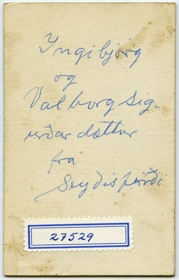 Ingibjörg
og
Valborg Sig-
urðar dættur
frá
Seyðisfirði
27529